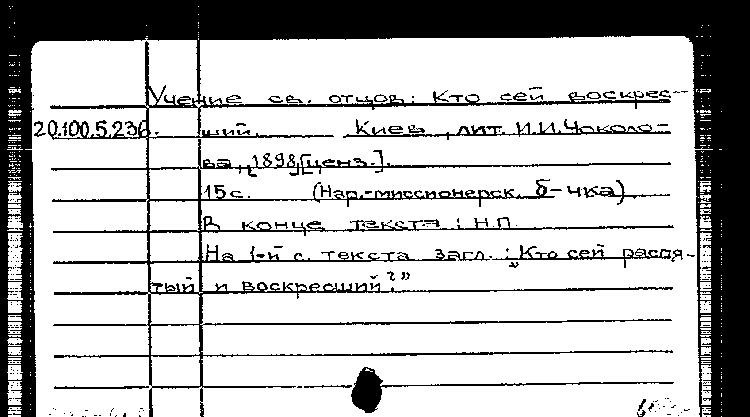 Учение св. отцов: Кто сей воскрес-
20.100.5.236. ший. Киев, лит. И.И.Чоколо-
ва, [1898][ценз.].
15с. (Нар.-миссионерск. б-чка)
В конце текста: Н.П.
На 1-й с. текста загл.: „Кто сей распя-
тый и воскресший?”